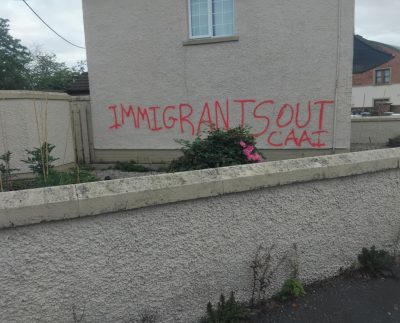 IMMIGRANTS OUT
CAAI